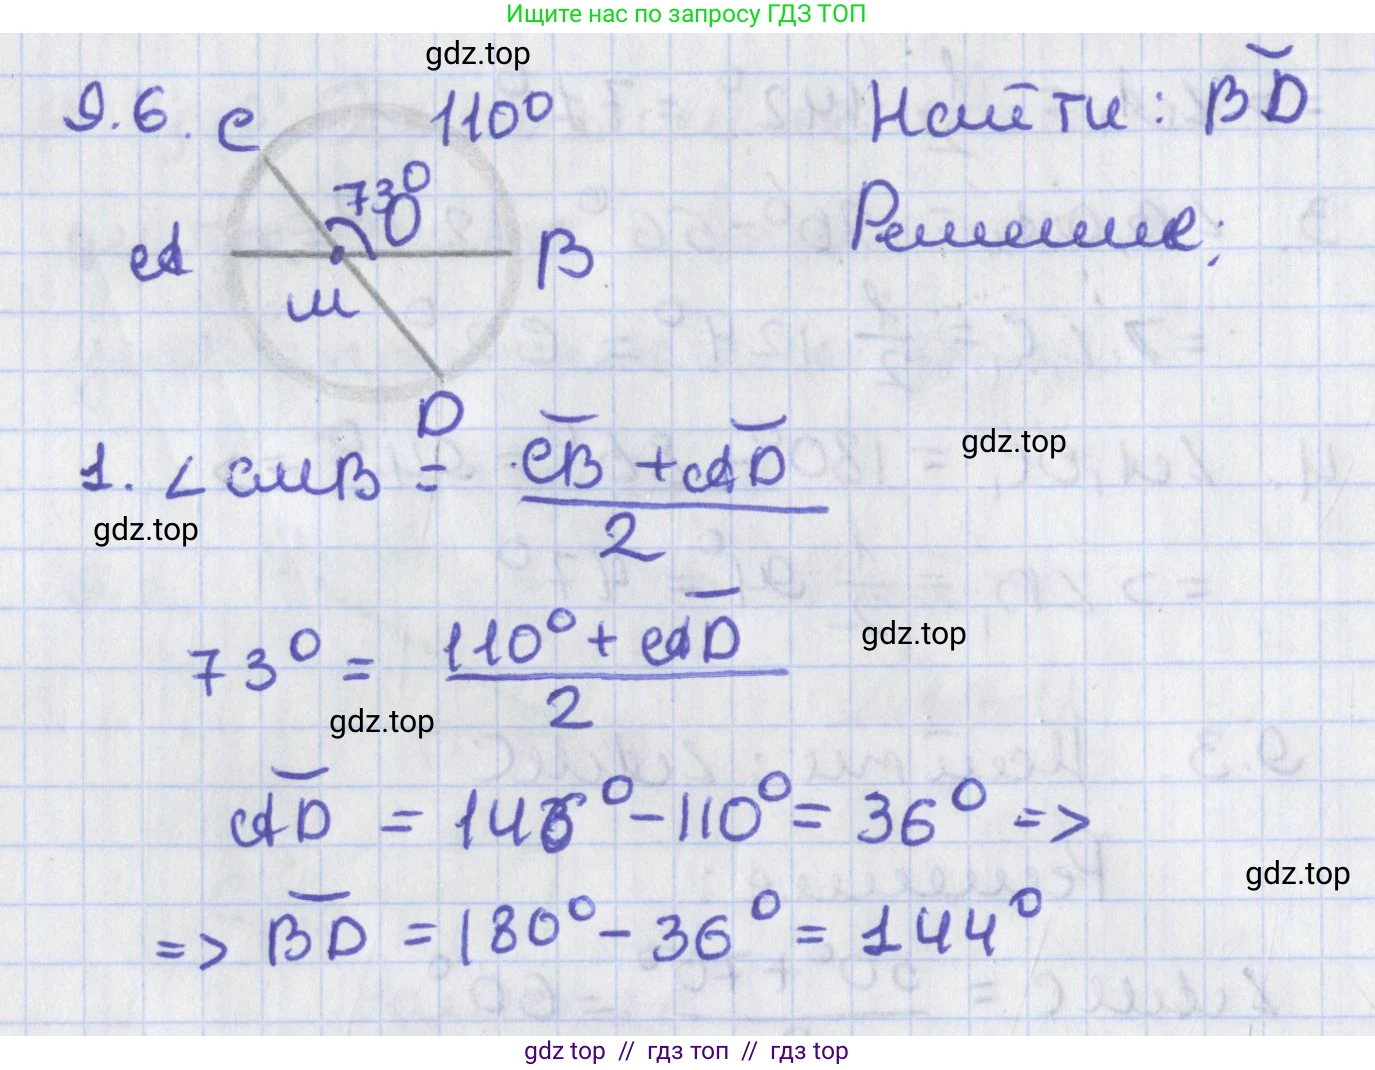 Ищите нас по запросу ГДЗ ТОП
gdz.top
9.6. C 110° Найти: B͝D
73° O
A B Решение:
M
D
1. ∠CMB = (C͝B + A͝D)/2
gdz.top
gdz.top
73° = (110° + A͝D)/2
gdz.top
gdz.top
A͝D = 146° - 110° = 36° =>
gdz.top
=> B͝D = 180° - 36° = 144°
gdz top // гдз топ // гдз top